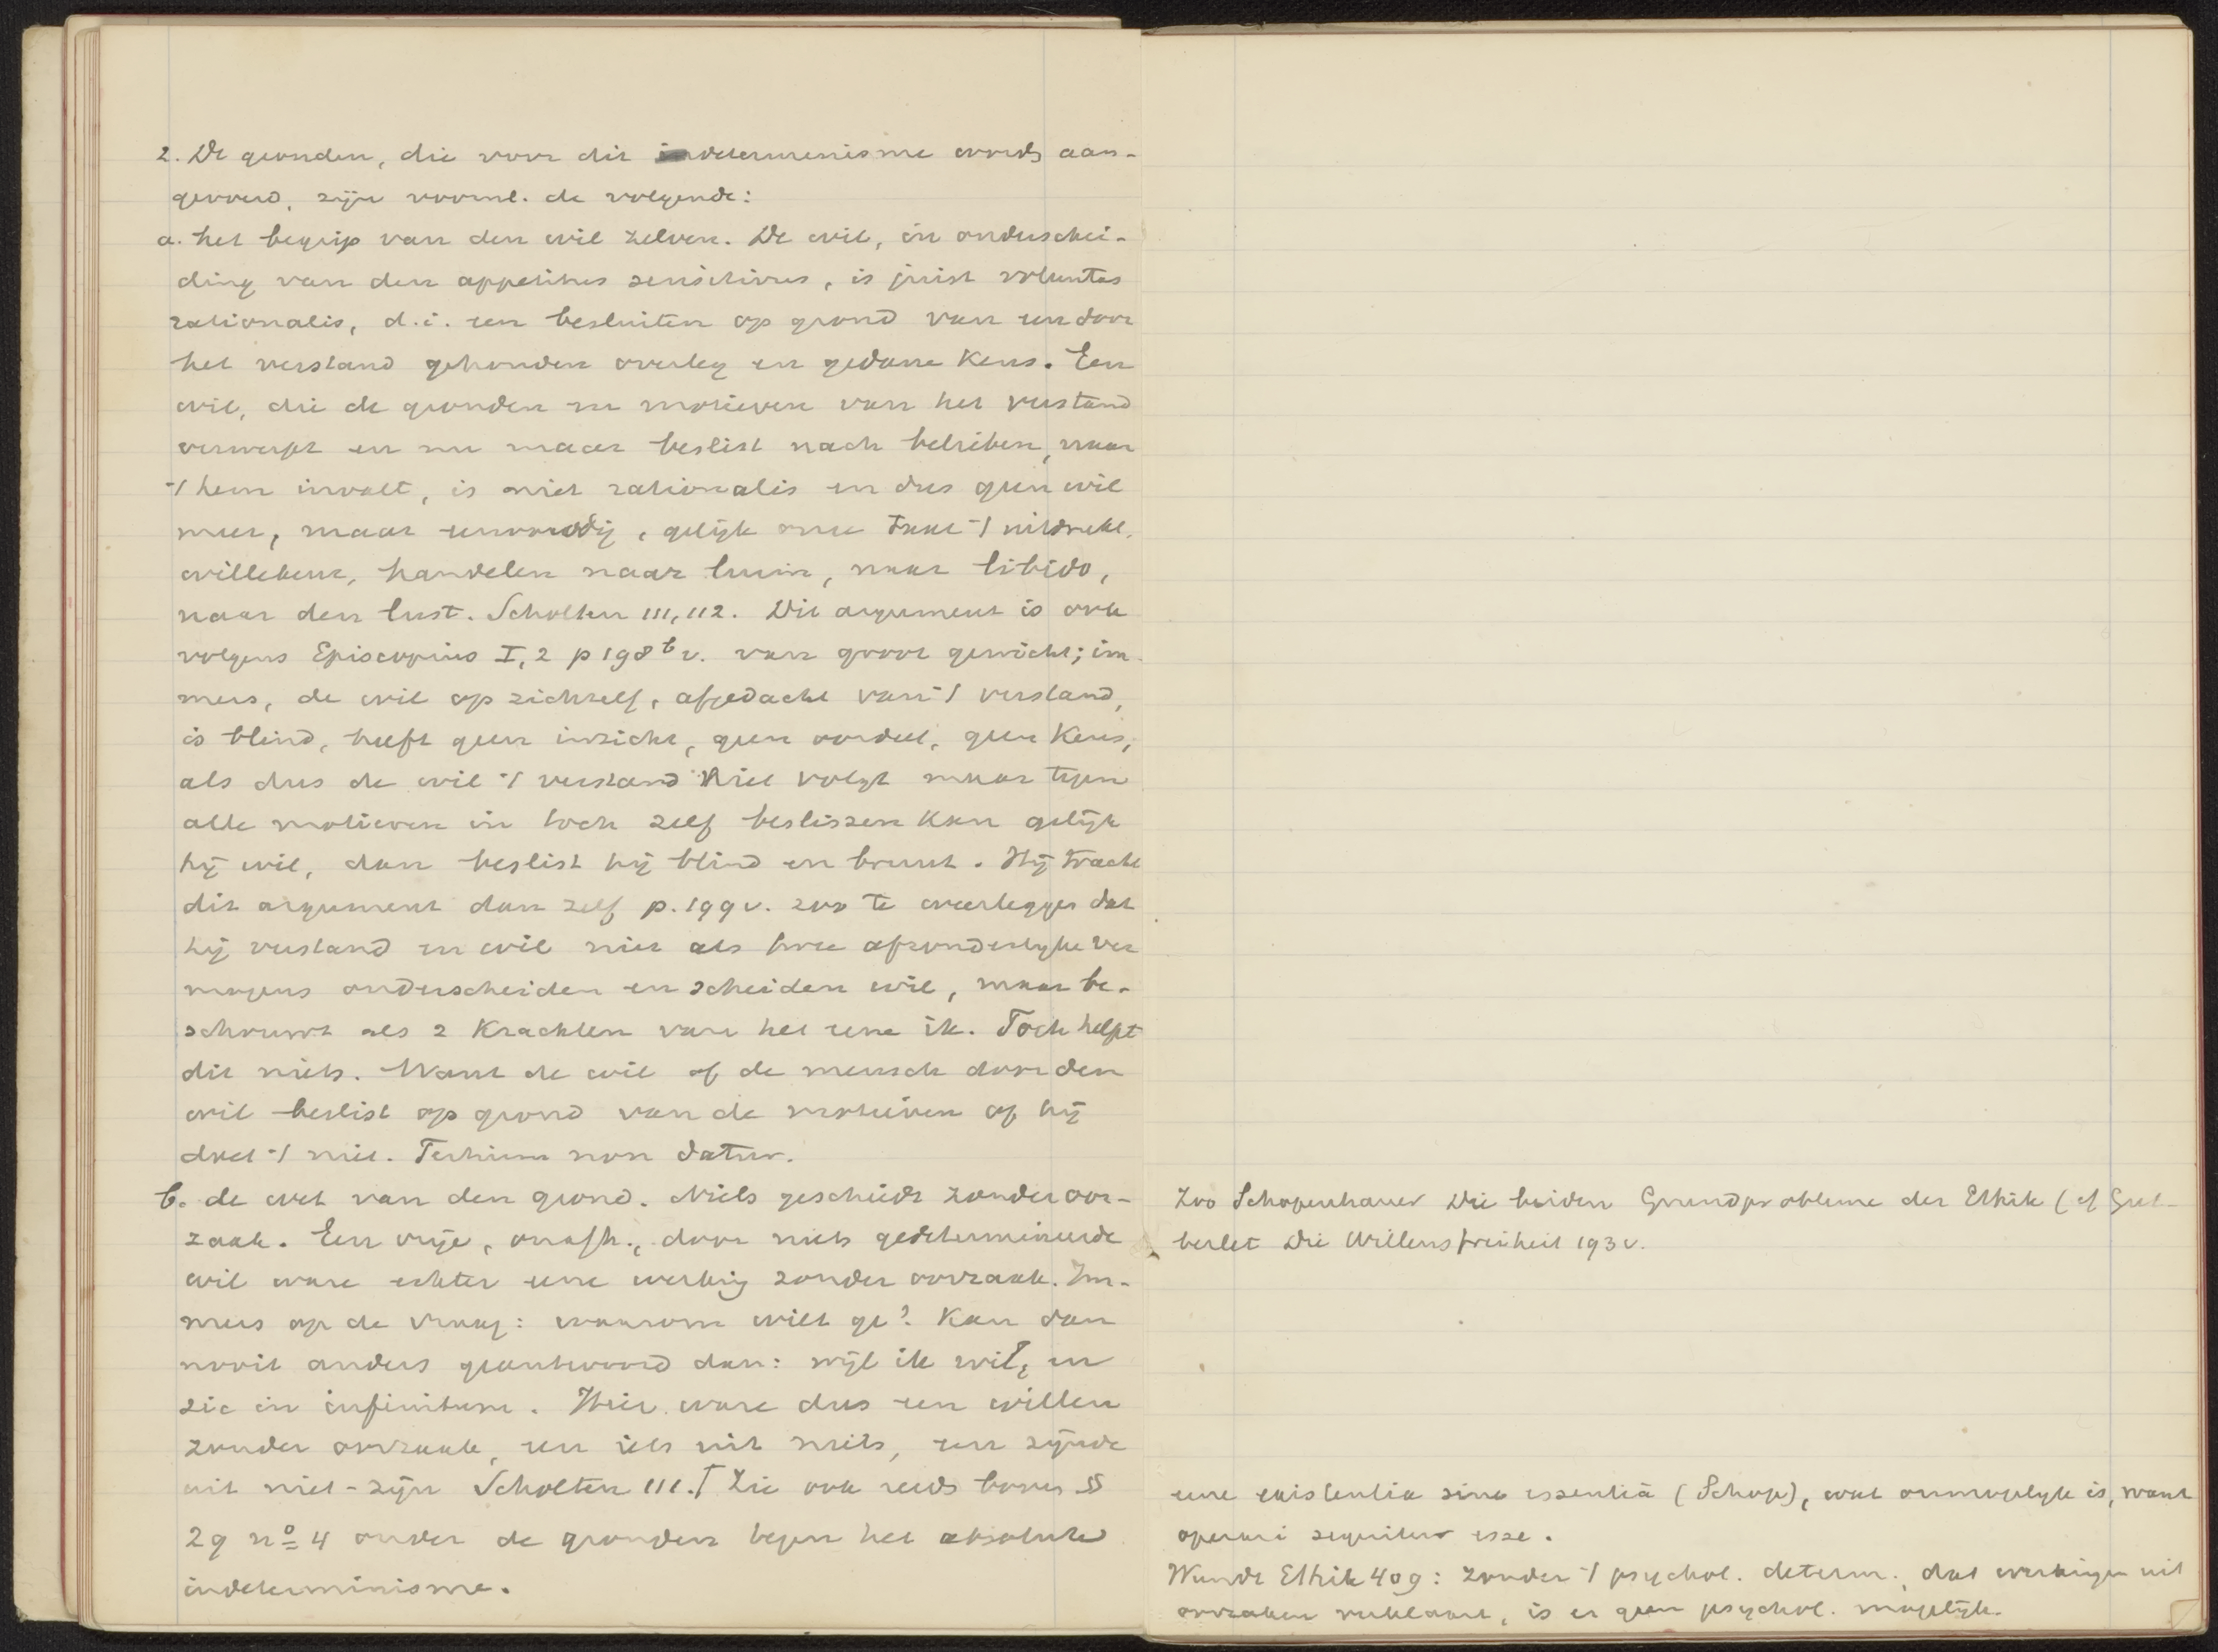 2. De gronden, die voor dit determinisme wordt aan-
gevoerd, zijn voorml. de volgende:
a. het begrip van den wil zelven. De wil, in onderschei-
ding van den appetitus sensitivus, is juist voluntas
rationalis, d.i. een besluiten op grond van een door
het verstand gehouden overleg en gedane Keus. Een
wil, die de gronden en motieven van het verstand
verwerpt en nu maar beslist nach belieben, naar
't hem invalt, is niet rationalis en dus geen wil
meer, maar eenvoudig, gelijk onze taal 't uitdrukt,
willekeur, handelen naar luim, naar libido,
naar den lust. Scholten III, 112. Dit argument is ook
volgens Episcopius I, 2 p 198b v. van groot gewicht; im-
mers, de wil op zichzelf, afgedacht van 't verstand,
is blind, heeft geen inzicht, geen oordeel, geen Keus;
als dus de wil 't verstand niet volgt maar tegen
alle motieven in toch zelf beslissen Kan gelijk
hij wil, dan beslist hij blind en bruut. Hij tracht
dit argument dan zelf p. 199 v. zoo te weerleggen dat
hij verstand en wil niet als twee afzonderlyke ver
mogens onderscheiden en scheiden wil, maar be-
schouwt als 2 Krachten van het eene ik. Toch helpt
dit niets. Want de wil of de mensch door den
wil beslist op grond van de motieven of hij
doet 't niet. Tertium non datur.
b. de wet van den grond. Niets geschiedt zonder oor-
zaak. Een vrije, onafh., door niets gedetermineerde
wil ware echter eene werking zonder oorzaak. Im-
mers op de vraag: waarom wilt ge? Kan dan
nooit anders geantwoord dan: wijl ik wil, en
sic in infinitum. Hier ware dus een willen
zonder oorzaak, een iets uit niets, een zijnde
uit niet-zijn Scholten III. Zie ook reeds boven §
29 no 4 onder de gronden tegen het absolute
indeterminisme.
Zoo Schopenhauer Die beiden Grundprobleme der Ethik (cf Gut-
berlet Die Willensfreiheit 193 v.
eene existentia sine essentiâ (Schop), wat onmogelyk is, want
operari sequitur esse.
Wundt Ethik 409: zonder 't psychol. determ., dat werkingen uit
oorzaken verklaart, is er geen psychol. mogelijk.